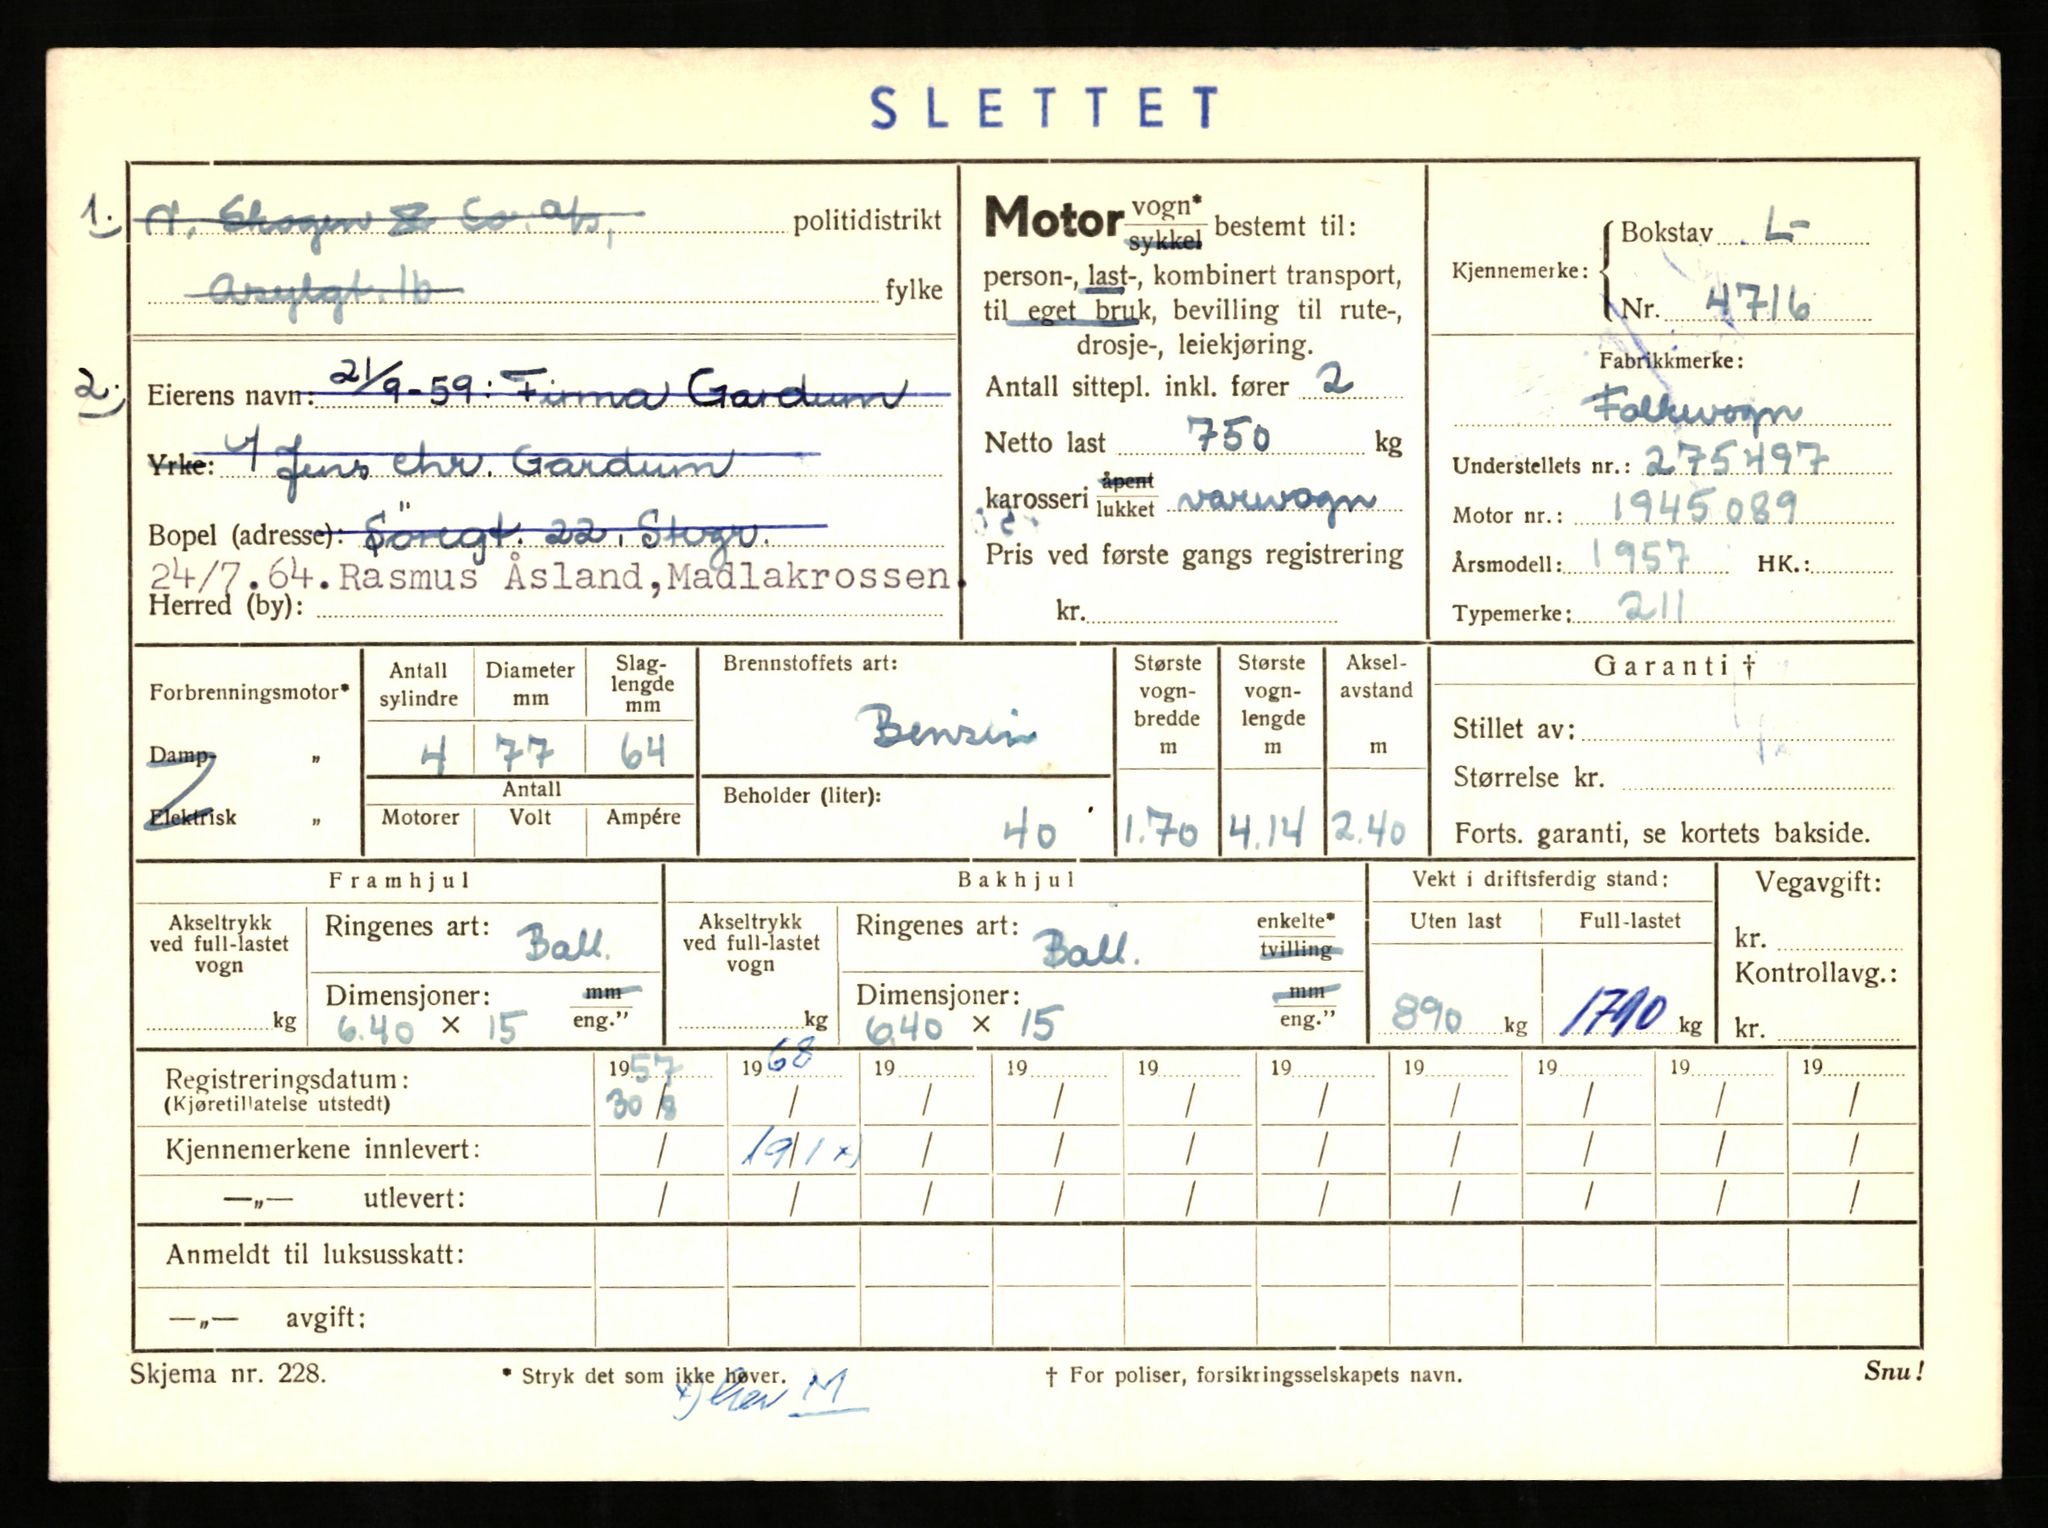 SLETTET
1. N. Skogen & Co. a/s, politidistrikt
Asylgt. 1b fylke
2. Eierens navn: 21/9-59: Firma Gardum
Yrke: v/ Jens Chr. Gardum
Bopel (adresse): Söregt. 22, Stvgr.
24/7.64. Rasmus Åsland, Madlakrossen.
Herred (by):
Motor vogn* / sykkel bestemt til:
person-, last-, kombinert transport,
til eget bruk, bevilling til rute-,
drosje-, leiekjøring.
Antall sittepl. inkl. fører 2
Netto last 750 kg
karosseri åpent / lukket varevogn
Pris ved første gangs registrering
kr.
Kjennemerke: Bokstav L-
Nr. 4716
Fabrikkmerke:
Folkevogn
Understellets nr.: 275497
Motor nr.: 1945089
Årsmodell: 1957 HK.:
Typemerke: 211
Forbrenningsmotor*
Damp- „
Elektrisk „
Antall sylindre Diameter mm Slag-lengde mm
4 77 64
Antall
Motorer Volt Ampére
Brennstoffets art:
Bensin
Beholder (liter):
40
Største vogn-bredde m
1.70
Største vogn-lengde m
4.14
Aksel-avstand m
2.40
Garanti †
Stillet av:
Størrelse kr.
Forts. garanti, se kortets bakside.
Framhjul
Akseltrykk ved full-lastet vogn
kg
Ringenes art: Ball.
Dimensjoner: mm / eng.”
6.40 × 15
Bakhjul
Akseltrykk ved full-lastet vogn
kg
Ringenes art: Ball. enkelte* / tvilling
Dimensjoner: mm / eng.”
6.40 × 15
Vekt i driftsferdig stand:
Uten last Full-lastet
890 kg 1790 kg
Vegavgift:
kr.
Kontrollavg.:
kr.
Registreringsdatum: 1957 1968 19 19 19 19 19 19 19 19
(Kjøretillatelse utstedt) 30/8 / / / / / / / / /
Kjennemerkene innlevert: / 19/1 x) / / / / / / / /
—„— utlevert: / / / / / / / / / /
Anmeldt til luksusskatt:
—„— avgift:
Skjema nr. 228. * Stryk det som ikke høver. † For poliser, forsikringsselskapets navn. Snu!
x) M